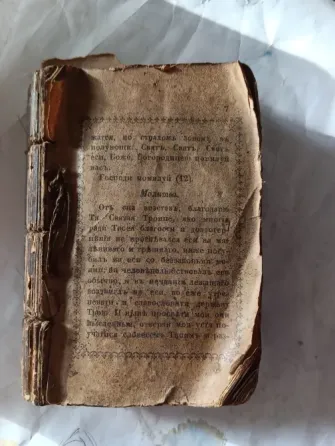 7
жатся, но страхомъ зовемъ въ
полунощи: Святъ, Святъ, Святъ
еси, Боже, Богородицею помилуй
насъ.
Господи помилуй (12).
Молитва.
Отъ сна возставъ, благодарю
Тя Святая Троице, яко многія
ради Твоея благости и долготер-
пѣнія не прогнѣвался еси на мя
лѣниваго и грѣшнаго, ниже погу-
билъ мя еси со беззаконьми мо-
ими; но человѣколюбствовалъ еси
обычно, и въ нечаяніи лежащаго
воздвиглъ мя еси, во еже утре-
невати и славословити державу
Твою. И нынѣ просвѣти мои очи
мысленныя, отверзи моя уста по-
учатися словесемъ Твоимъ и раз-